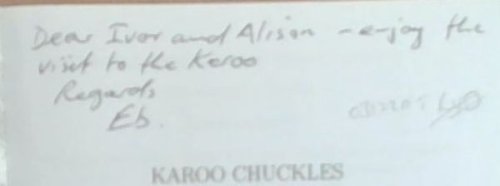 Dear Ivor and Alison - enjoy the
visit to the Karoo
Regards
Eb.
KAROO CHUCKLES